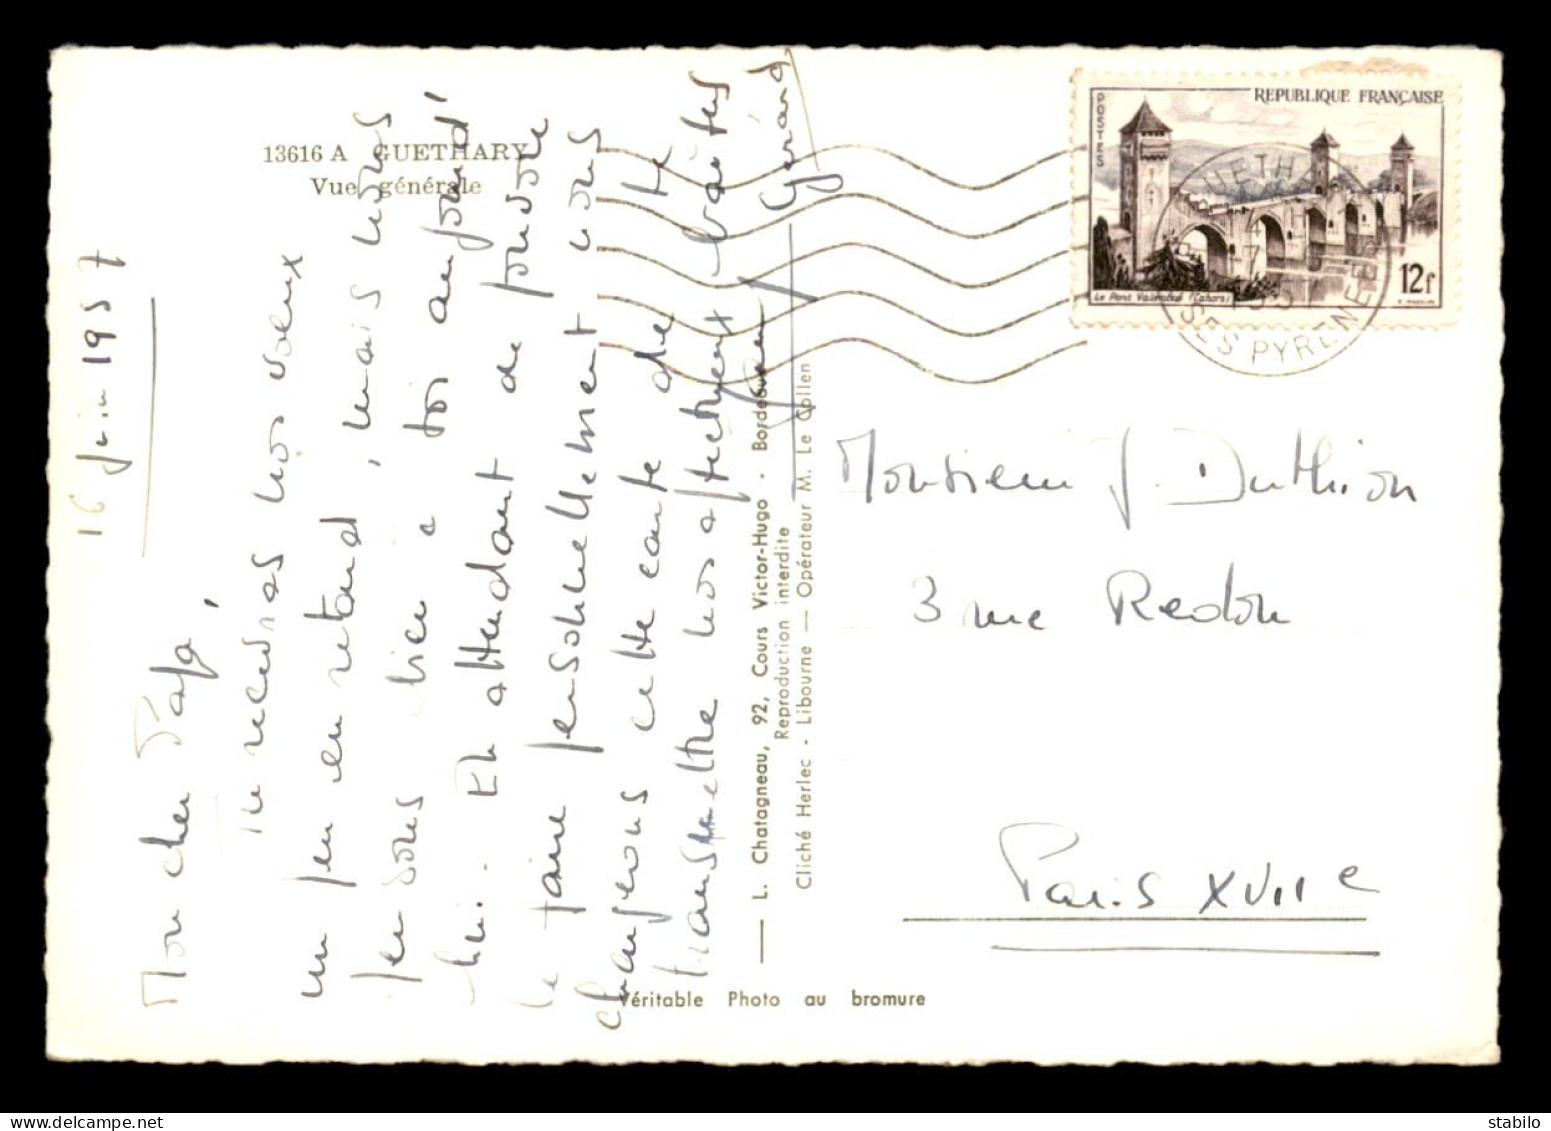 13616 A GUETHARY
Vue générale
16 Juin 1957
Mon cher Papa,
Tu recevras nos voeux
un peu en retard, mais nous
pensons bien à toi aujourd'
hui. En attendant de pouvoir
le faire personnellement nous
chargeons cette carte de te
transmettre nos affectueux
Gérard
L. Chatagneau, 92, Cours Victor-Hugo - Bordeaux
Reproduction interdite
Cliché Herlec - Libourne — Opérateur M. Le Collen
Véritable Photo au bromure
REPUBLIQUE FRANÇAISE
POSTES
12f
Le Pont Valentré (Cahors)
GUETHARY
BSES PYRENEES
Monsieur J. Duthion
3 rue Redon
Paris XVIIe
delcampe.net